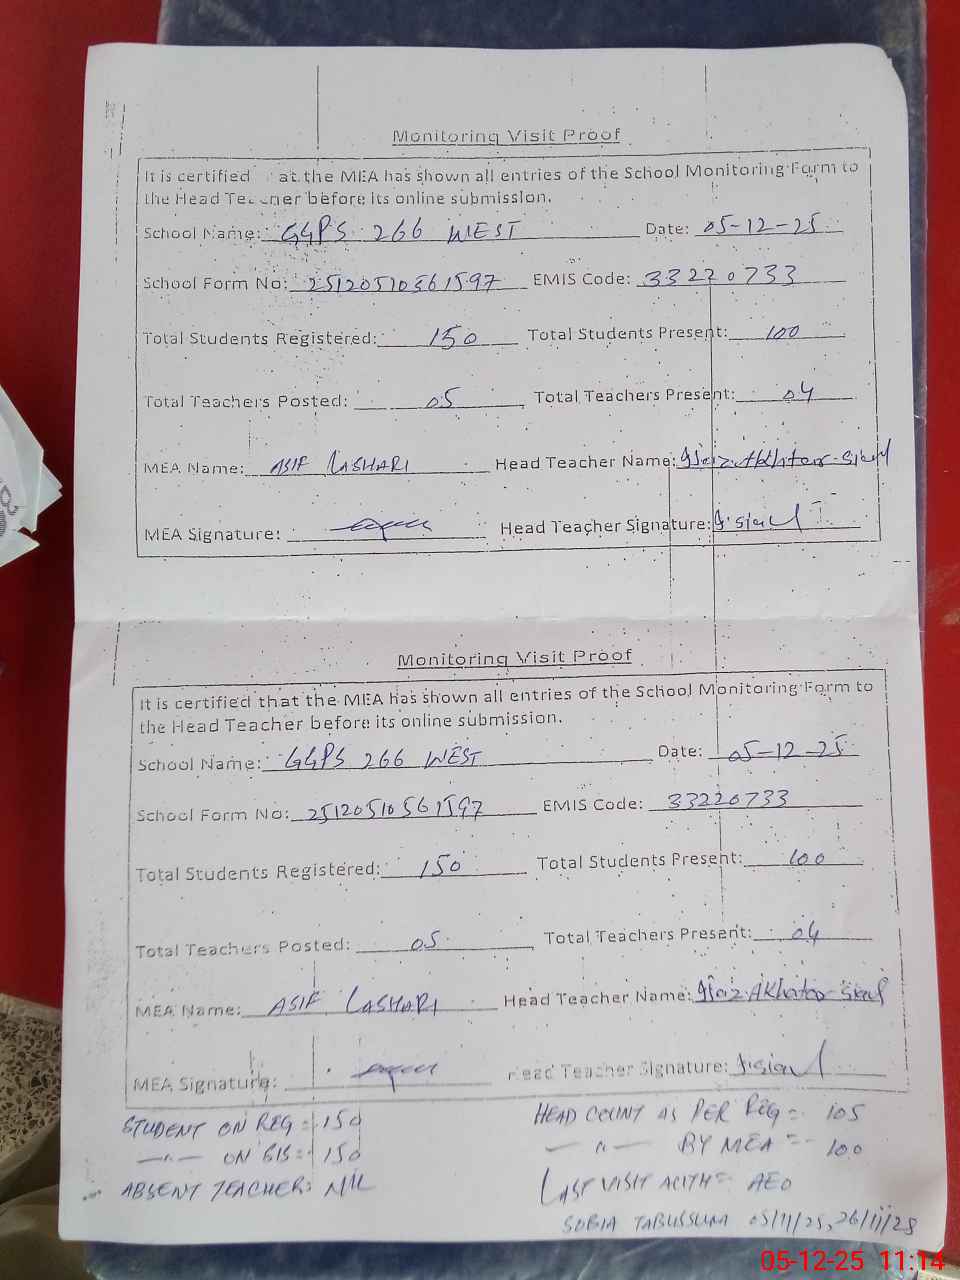 Monitoring Visit Proof
It is certified at the MEA has shown all entries of the School Monitoring Form to
the Head Teacher before its online submission.
School Name: GGPS 266 WEST Date: 05-12-25
School Form No: 25120510561597 EMIS Code: 33220733
Total Students Registered: 150 Total Students Present: 100
Total Teachers Posted: 05 Total Teachers Present: 04
MEA Name: ASIF LASHARI Head Teacher Name:
MEA Signature: Head Teacher Signature:
Monitoring Visit Proof
It is certified that the MEA has shown all entries of the School Monitoring Form to
the Head Teacher before its online submission.
School Name: GGPS 266 WEST Date: 05-12-25
School Form No: 25120510561597 EMIS Code: 33220733
Total Students Registered: 150 Total Students Present: 100
Total Teachers Posted: 05 Total Teachers Present: 04
MEA Name: ASIF LASHARI Head Teacher Name:
MEA Signature: Head Teacher Signature:
STUDENT ON REG = 150 HEAD COUNT AS PER REG = 105
—"— ON SIS = 150 —"— BY MEA = 100
ABSENT TEACHER: NIL LAST VISIT = AEO
SOBIA TABUSSUM 05/11/25, 26/11/25
05-12-25 11:14